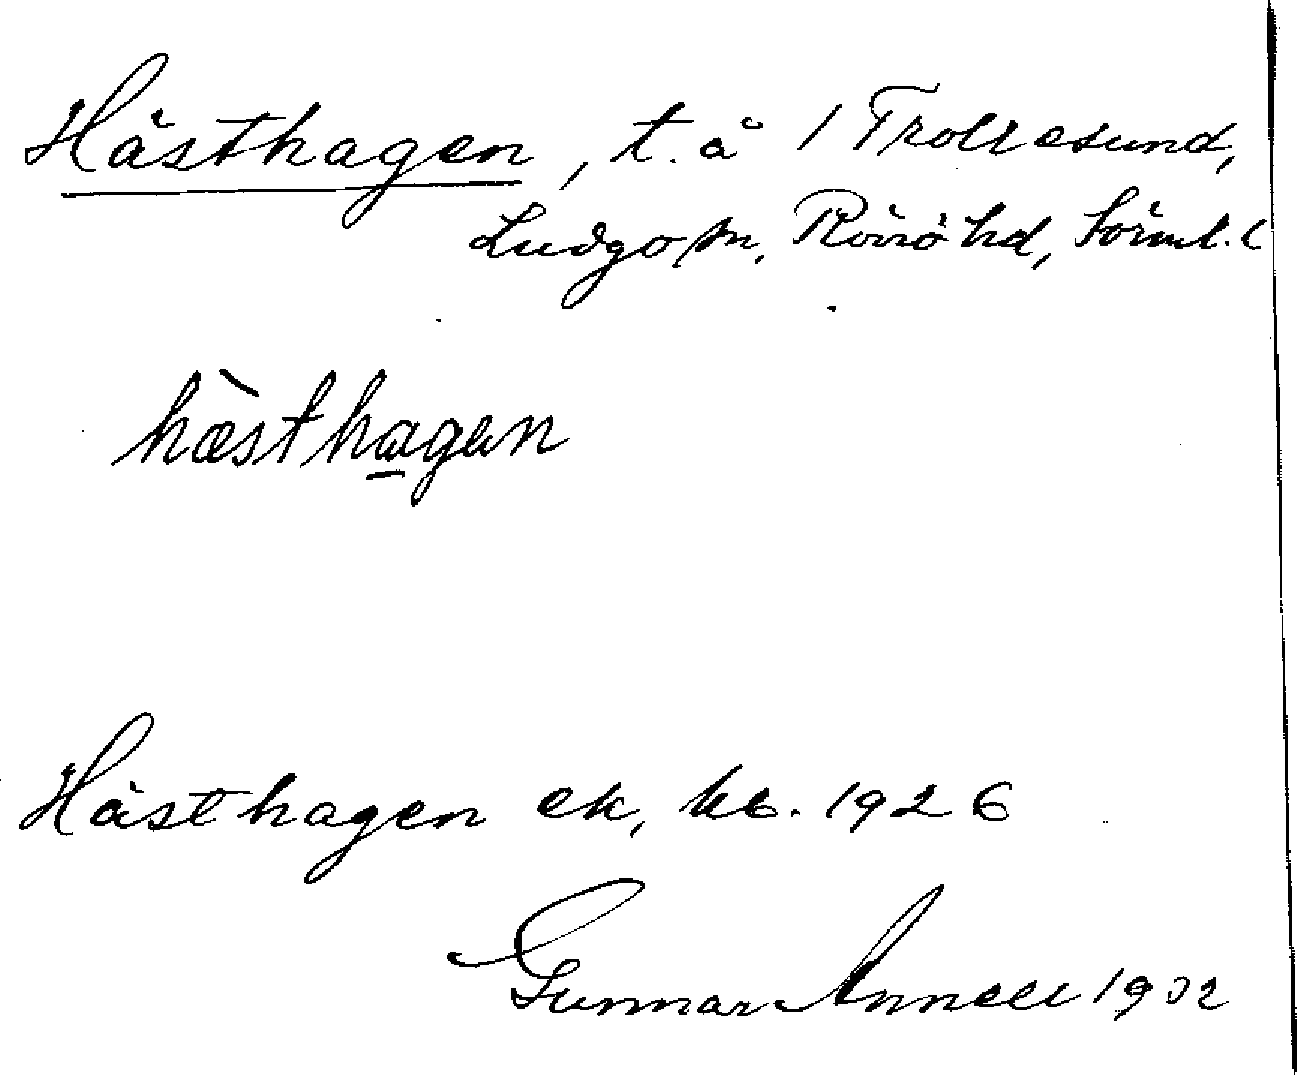 Hästhagen, t. å 1 Trollesund,
Ludgo sn, Rönö hd, Sörml. l
hæ̀sthagen
Hästhagen ek, kb. 1926
Gunnar Annell 1932